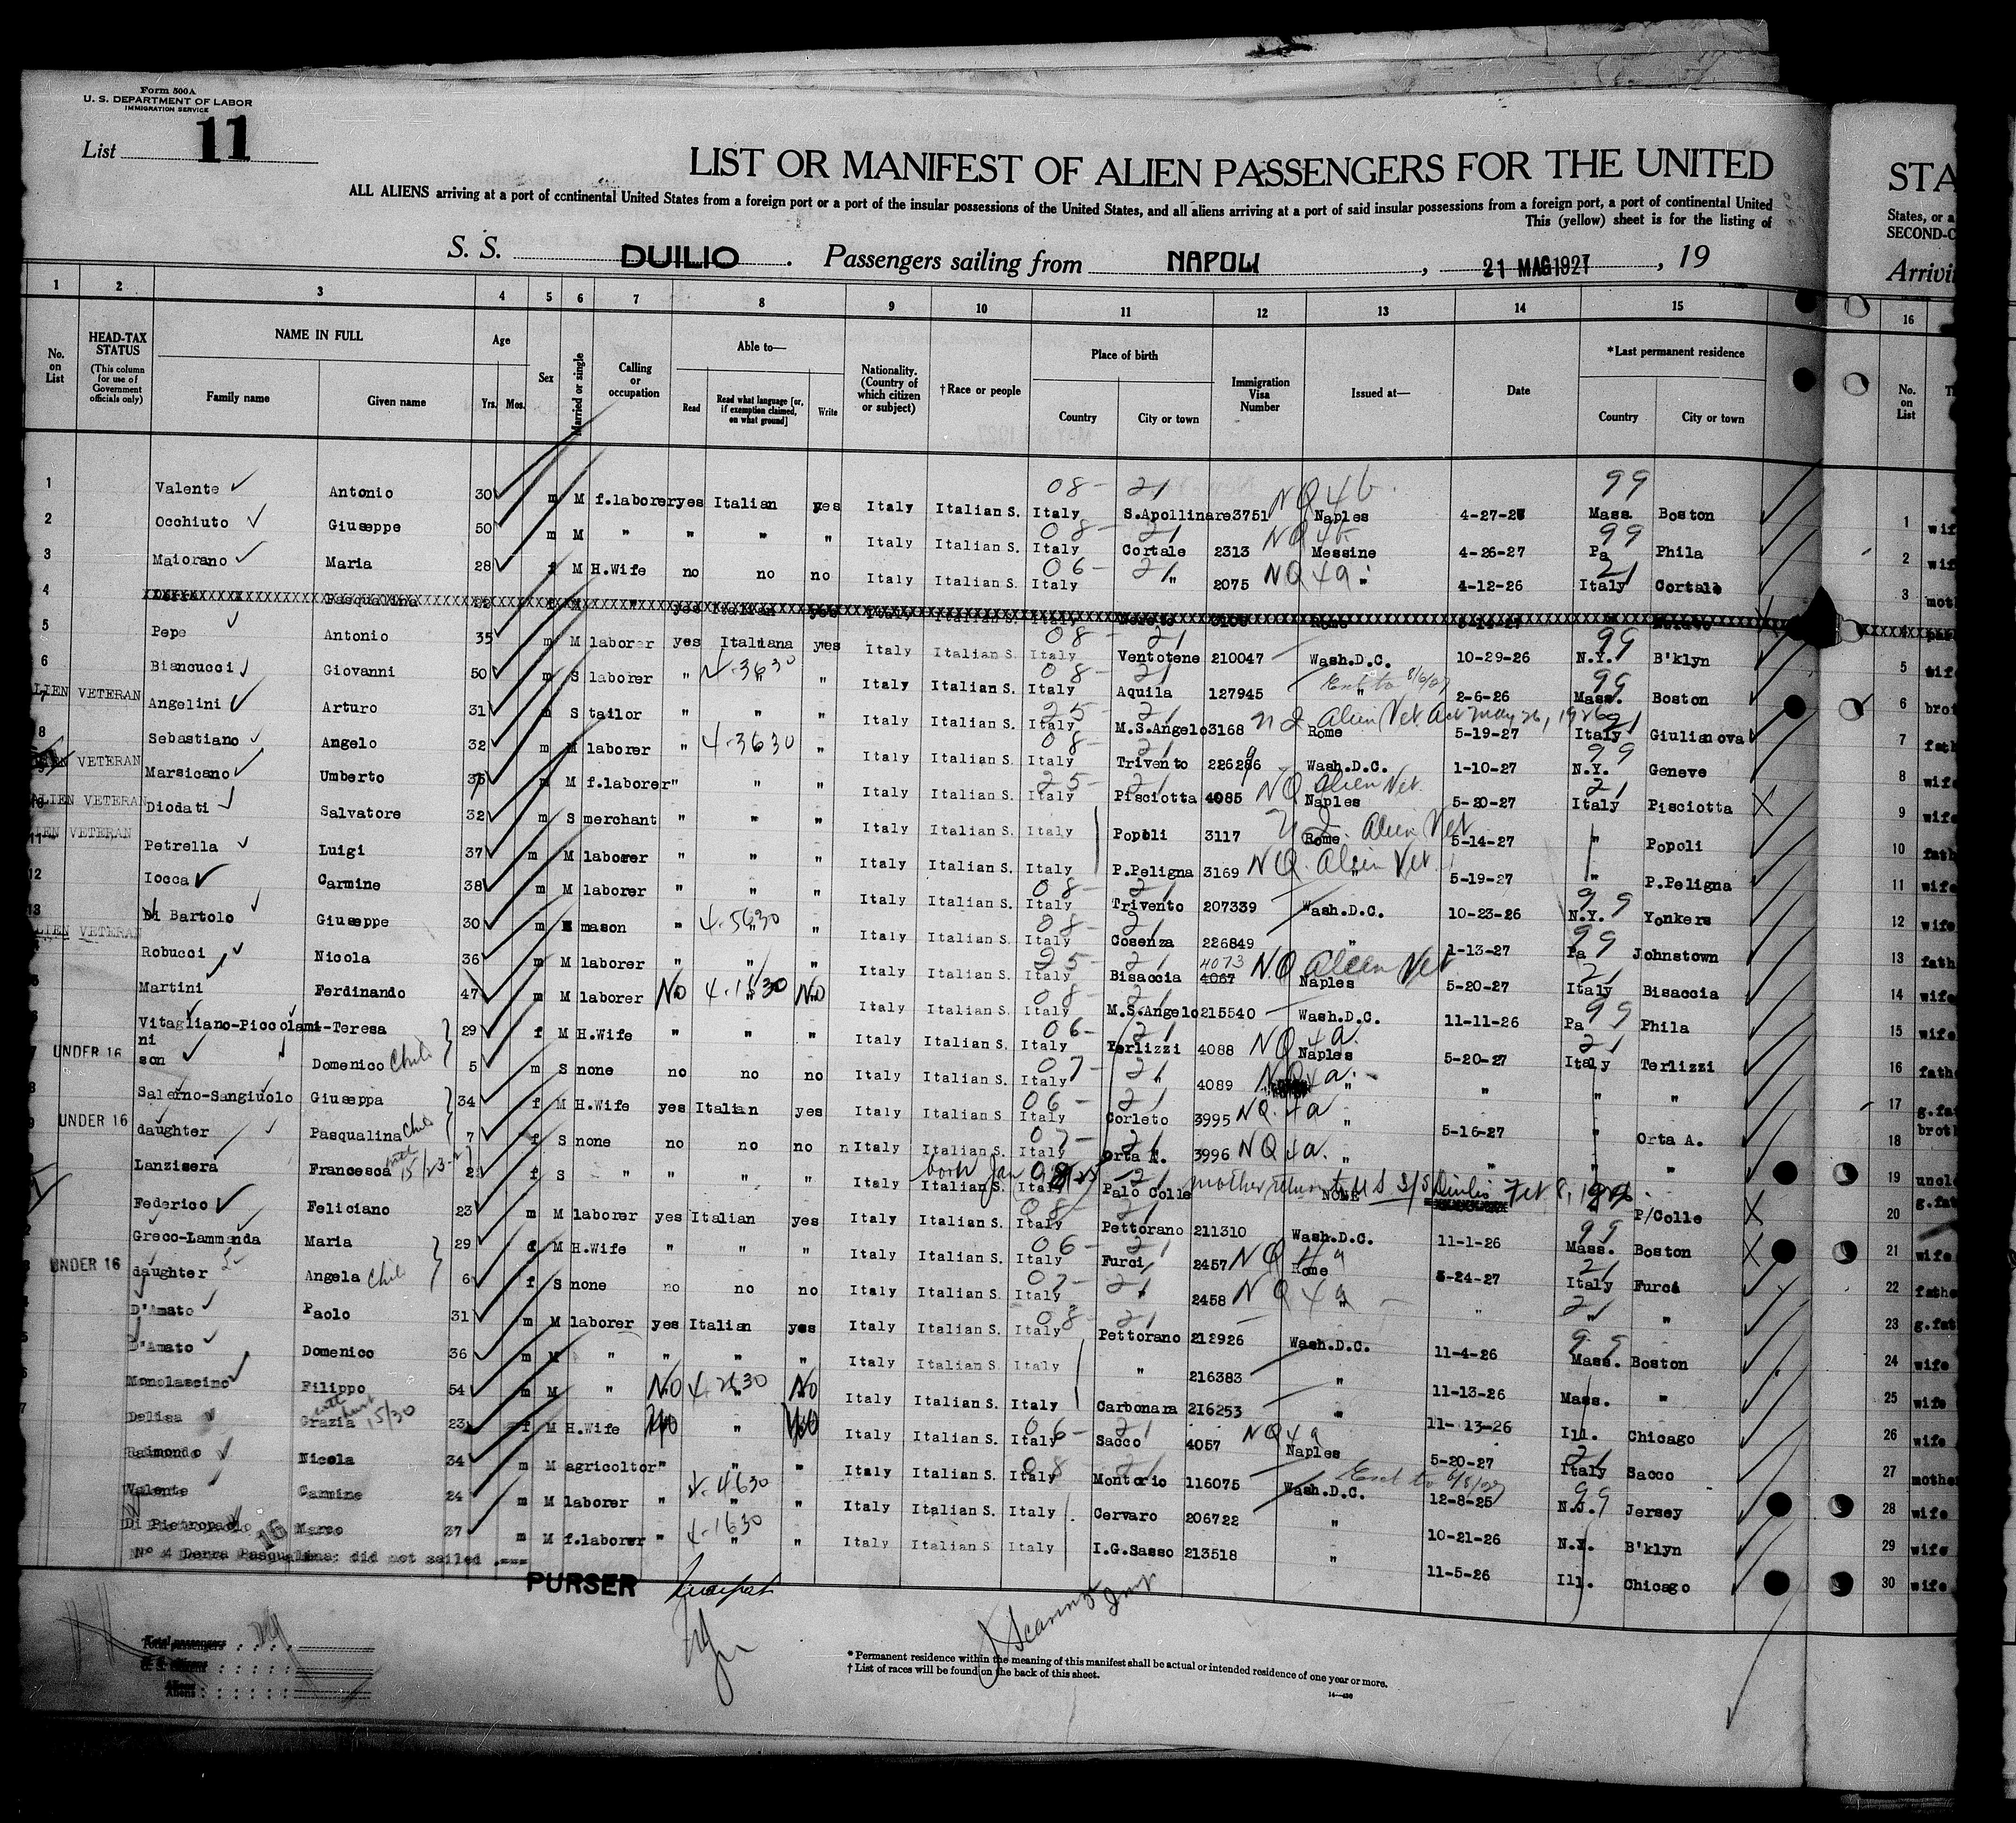 Form 500A
U. S. DEPARTMENT OF LABOR
IMMIGRATION SERVICE
List 11
LIST OR MANIFEST OF ALIEN PASSENGERS FOR THE UNITED
STA
ALL ALIENS arriving at a port of continental United States from a foreign port or a port of the insular possessions of the United States, and all aliens arriving at a port of said insular possessions from a foreign port, a port of continental United
States, or a
This (yellow) sheet is for the listing of
SECOND-C
S. S. DUILIO . Passengers sailing from NAPOLI , 21 MAG 1927 , 19
Arrivi
1 2 3 4 5 6 7 8 9 10 11 12 13 14 15 16
No. on List
HEAD-TAX STATUS
(This column for use of Government officials only)
NAME IN FULL
Family name Given name
Age
Yrs. Mos.
Sex
Married or single
Calling or occupation
Able to—
Read
Read what language [or, if exemption claimed, on what ground]
Write
Nationality. (Country of which citizen or subject)
†Race or people
Place of birth
Country City or town
Immigration Visa Number
Issued at—
Date
*Last permanent residence
Country City or town
No. on List
1 Valente Antonio 30 m M f.laborer yes Italian yes Italy Italian S. Italy S.Apollinare 3751 NQ 4b Naples 4-27-27 Mass. Boston 1 wif
2 Occhiuto Giuseppe 50 m M " " " " Italy Italian S. Italy Cortale 2313 NQ 4b Messine 4-26-27 Pa Phila 2 wif
3 Maiorano Maria 28 f M H.Wife no no no Italy Italian S. Italy " 2075 NQ 4a " 4-12-26 Italy Cortale 3 moth
4 Pasqualina yes Italian yes Italy Italian S. Italy Rome
5 Pepe Antonio 35 m M laborer yes Italiana yes Italy Italian S. Italy Ventotene 210047 Wash.D.C. 10-29-26 N.Y. B'klyn 5 wife
6 Biancucci Giovanni 50 m S laborer " " " Italy Italian S. Italy Aquila 127945 " 2-6-26 Mass. Boston 6 brot
7 ALIEN VETERAN Angelini Arturo 31 m S tailor " " " Italy Italian S. Italy M.S.Angelo 3168 Alien Vet Act May 26, 1926 Rome 5-19-27 Italy Giulianova 7 fath
8 Sebastiano Angelo 32 m M laborer " 4-3630 " Italy Italian S. Italy Trivento 226286 Wash.D.C. 1-10-27 N.Y. Geneve 8 wife
9 VETERAN Marsicano Umberto 35 m M f.laborer " " " Italy Italian S. Italy Pisciotta 4085 NQ Alien Vet. Naples 5-20-27 Italy Pisciotta 9 wife
10 ALIEN VETERAN Diodati Salvatore 32 m S merchant " " " Italy Italian S. Italy Popoli 3117 Alien Vet Rome 5-14-27 " Popoli 10 fath
11 ALIEN VETERAN Petrella Luigi 37 m M laborer " " " Italy Italian S. Italy P.Peligna 3169 NQ Alien Vet " 5-19-27 " P.Peligna 11 wife
12 Iocca Carmine 38 m M laborer " " " Italy Italian S. Italy Trivento 207339 Wash.D.C. 10-23-26 N.Y. Yonkers 12 wife
13 Di Bartolo Giuseppe 30 m mason " 4-5630 " Italy Italian S. Italy Cosenza 226849 " 1-13-27 Pa Johnstown 13 fath
ALIEN VETERAN Robucci Nicola 36 m M laborer " " " Italy Italian S. Italy Bisaccia 4067 4073 NQ Alien Vet Naples 5-20-27 Italy Bisaccia 14 wife
Martini Ferdinando 47 m M laborer No 4-1630 No Italy Italian S. Italy M.S.Angelo 215540 Wash.D.C. 11-11-26 Pa Phila 15 wife
Vitagliano-Piccolami-Teresa 29 f M H.Wife " " " Italy Italian S. Italy Terlizzi 4088 NQ 4a Naples 5-20-27 Italy Terlizzi 16 fath
ni
UNDER 16 son Domenico Child 5 m S none no no no Italy Italian S. Italy " 4089 NQ 4a " " " " 17 g.fa
Salerno-Sangiuolo Giuseppa 34 f M H.Wife yes Italian yes Italy Italian S. Italy Corleto 3995 NQ 4a " 5-16-27 " Orta A. 18 brot
UNDER 16 daughter Pasqualina Child 7 f S none no no no Italy Italian S. Italy Orta A. 3996 NQ 4a " " " " 19 uncl
Lanzisera Francesca 2 f S " " " " Italy Italian S. Italy Palo Colle NONE P/Colle 20 g.fat
born Jan mother return to U S S/S Duilio Feb 8,
Federico Feliciano 23 m M laborer yes Italian yes Italy Italian S. Italy Pettorano 211310 Wash.D.C. 11-1-26 Mass. Boston 21 wife
Greco-Lammanda Maria 29 f M H.Wife " " " Italy Italian S. Italy Furci 2457 NQ 4a Rome 5-24-27 Italy Furci 22 fathe
UNDER 16 daughter Angela Child 6 f S none no no no Italy Italian S. Italy " 2458 NQ 4a " " " " 23 g.fat
D'Amato Paolo 31 m M laborer yes Italian yes Italy Italian S. Italy Pettorano 212926 Wash.D.C. 11-4-26 Mass. Boston 24 wife
D'Amato Domenico 36 m M " " " " Italy Italian S. Italy " 216383 " 11-13-26 Mass. " 25 wife
Monolascino Filippo 54 m M " No 4-2630 No Italy Italian S. Italy Carbonara 216253 " 11-13-26 Ill. Chicago 26 wife
Delisa Grazia 23 f M H.Wife " Italy Italian S. Italy Sacco 4057 NQ 4a Naples 5-20-27 Italy Sacco 27 mothe
Raimondo Nicola 34 m M agricoltor " " " Italy Italian S. Italy Montorio 116075 Wash.D.C. 12-8-25 N.J. Jersey 28 wife
Valente Carmine 24 m M laborer " 4-4630 " Italy Italian S. Italy Cervaro 206722 " 10-21-26 N.Y. B'klyn 29 wife
Di Pietropaolo Marco 37 m M f.laborer " 4-1630 " Italy Italian S. Italy I.G.Sasso 213518 " 11-5-26 Ill. Chicago 30 wife
No 4 Derra Pasqualina: did not sailed .===
16
PURSER
Total passengers
U. S. citizens
Aliens
* Permanent residence within the meaning of this manifest shall be actual or intended residence of one year or more.
† List of races will be found on the back of this sheet.